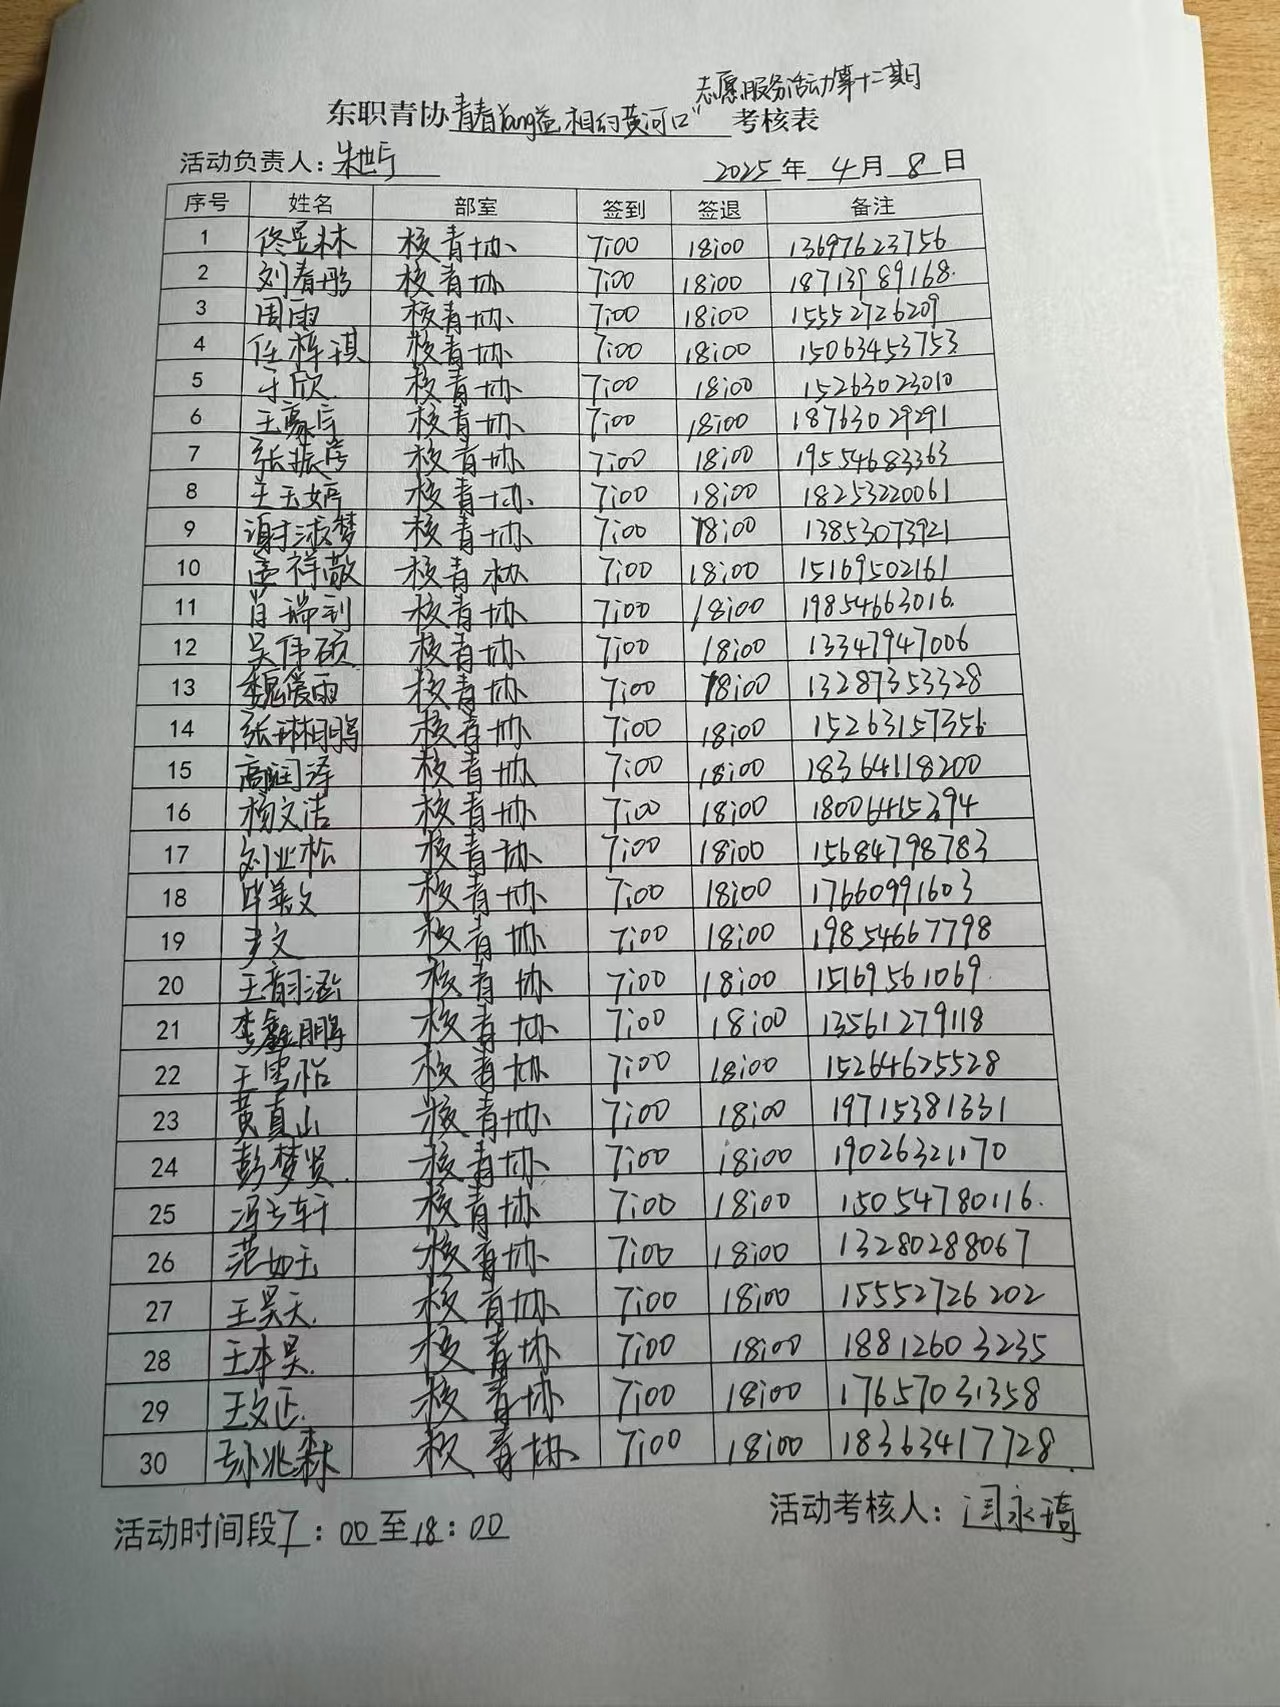 志愿服务活动第十二期
东职青协青春Yang益,相约黄河口"考核表
活动负责人: 朱世 2025年4月8日
序号 姓名 部室 签到 签退 备注
1 佟昱林 校青协 7:00 18:00 13697623756
2 刘春彤 校青协 7:00 18:00 18713989168.
3 周雨 校青协 7:00 18:00 15552726209
4 任梓琪 校青协 7:00 18:00 15063453753
5 于欣 校青协 7:00 18:00 15263023010
6 王豪 校青协 7:00 18:00 18763029291
7 张振 校青协 7:00 18:00 19554683363
8 王玉婷 校青协 7:00 18:00 18253220061
9 谢淑梦 校青协 7:00 18:00 13853073921
10 孟祥敬 校青协 7:00 18:00 15169502161
11 肖瑞利 校青协 7:00 18:00 19854663016.
12 吴伟硕 校青协 7:00 18:00 13347947006
13 魏爱雨 校青协 7:00 18:00 13287353328
14 张琳鹏 校青协 7:00 18:00 15263157356
15 高润泽 校青协 7:00 18:00 18364118200
16 杨文洁 校青协 7:00 18:00 18006415394
17 刘业松 校青协 7:00 18:00 15684798783
18 毕义 校青协 7:00 18:00 17660991603
19 尹文 校青协 7:00 18:00 19854667798
20 王韵涵 校青协 7:00 18:00 15169561069.
21 李鑫鹏 校青协 7:00 18:00 13561279118
22 王雪怡 校青协 7:00 18:00 15264625528
23 黄真山 校青协 7:00 18:00 19715381331
24 彭梦贤. 校青协 7:00 18:00 19026321170
25 冯士轩 校青协 7:00 18:00 15054780116.
26 范如玉 校青协 7:00 18:00 13280288067
27 王昊天. 校青协 7:00 18:00 15552726202
28 王本昊. 校青协 7:00 18:00 18812603235
29 王文正. 校青协 7:00 18:00 17657031358
30 孙兆森 校青协 7:00 18:00 18363417728.
活动时间段7:00至18:00 活动考核人: 闫永琦